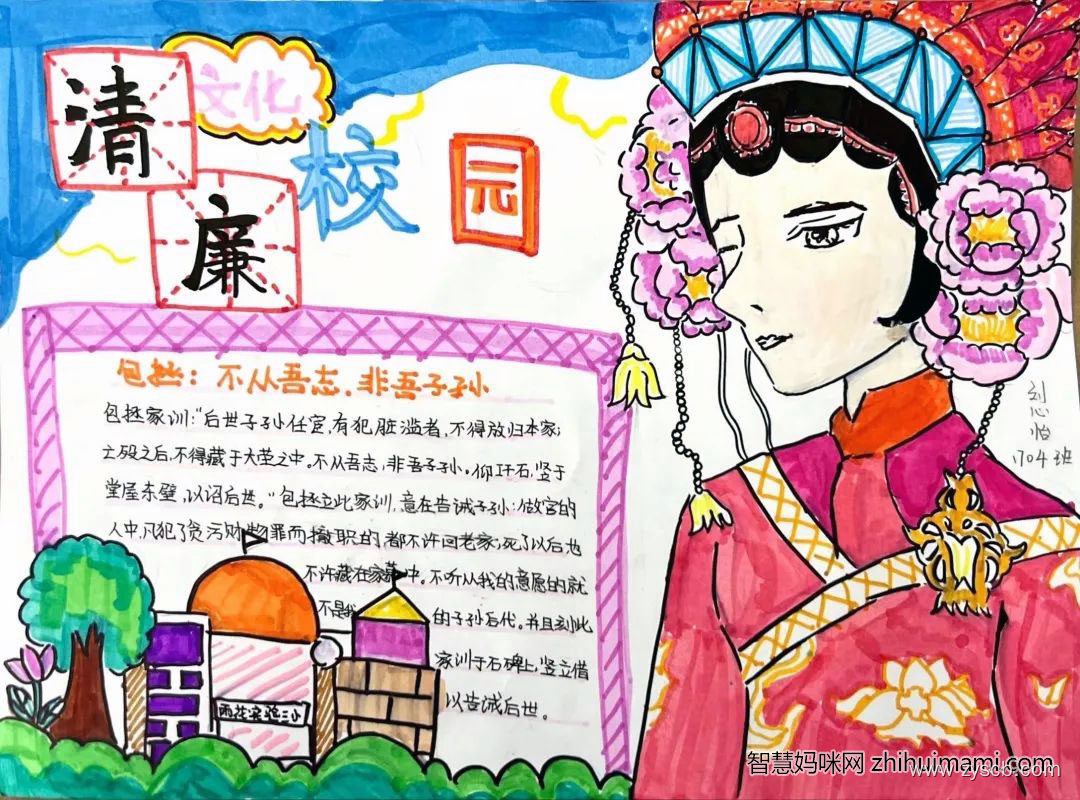 清
文化
校
园
廉
包拯：不从吾志，非吾子孙
包拯家训："后世子孙任官，有犯脏滥者，不得放归本家；
亡殁之后，不得藏于大茔之中。不从吾志，非吾子孙。仰工石，竖于
堂屋东壁，以诏后世。"包拯立此家训，意在告诫子孙：做官的
人中，凡犯了贪污财物罪而撤职的，都不许回老家；死了以后也
不许藏在家墓中。不听从我的意愿的就
不是我的子孙后代。并且刻此
家训于石碑上，竖立借
以告诫后世。
雨花实验二小
刘心怡
1704班
智慧妈咪网 zhihuimami.com
www.zyscb.com